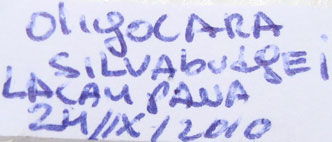 OligoCARA
SILVAbudgEi
LACAU PANA
24/IX/2010